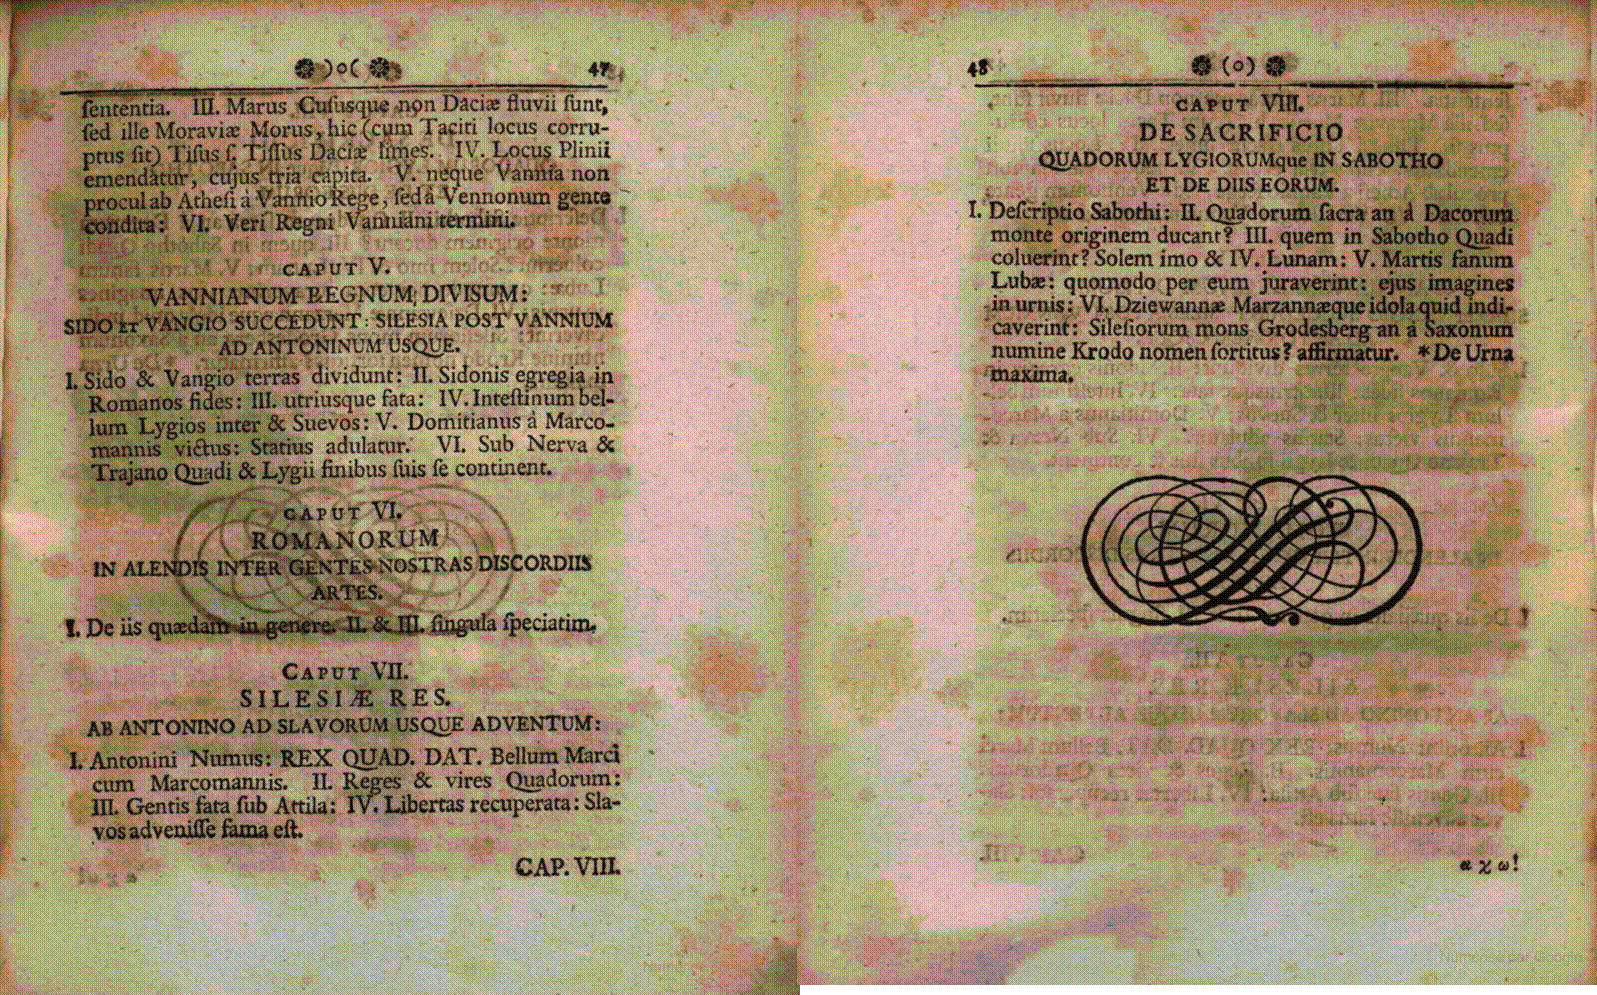 )o( 47
ſententia. III. Marus Cuſusque non Daciæ fluvii ſunt,
ſed ille Moraviæ Morus, hic (cum Taciti locus corru-
ptus ſit) Tiſus ſ. Tiſſus Daciæ limes. IV. Locus Plinii
emendatur, cujus tria capita. V. neque Vannia non
procul ab Atheſi à Vannio Rege, ſed à Vennonum gente
condita: VI. Veri Regni Vanniani termini.
CAPUT V.
VANNIANUM REGNUM DIVISUM:
SIDO ET VANGIO SUCCEDUNT: SILESIA POST VANNIUM
AD ANTONINUM USQUE.
I. Sido & Vangio terras dividunt: II. Sidonis egregia in
Romanos fides: III. utriusque fata: IV. Inteſtinum bel-
lum Lygios inter & Suevos: V. Domitianus à Marco-
mannis victus: Statius adulatur. VI. Sub Nerva &
Trajano Quadi & Lygii finibus ſuis ſe continent.
CAPUT VI.
ROMANORUM
IN ALENDIS INTER GENTES NOSTRAS DISCORDIIS
ARTES.
I. De iis quædam in genere. II. & III. ſingula ſpeciatim.
CAPUT VII.
SILESIÆ RES.
AB ANTONINO AD SLAVORUM USQUE ADVENTUM:
I. Antonini Numus: REX QUAD. DAT. Bellum Marci
cum Marcomannis. II. Reges & vires Quadorum:
III. Gentis fata ſub Attila: IV. Libertas recuperata: Sla-
vos adveniſſe fama eſt.
CAP. VIII.
48 (o)
CAPUT VIII.
DE SACRIFICIO
QUADORUM LYGIORUMque IN SABOTHO
ET DE DIIS EORUM.
I. Deſcriptio Sabothi: II. Quadorum ſacra an à Dacorum
monte originem ducant? III. quem in Sabotho Quadi
coluerint? Solem imo & IV. Lunam: V. Martis fanum
Lubæ: quomodo per eum juraverint: ejus imagines
in urnis: VI. Dziewannæ Marzannæque idola quid indi-
caverint: Sileſiorum mons Grodesberg an à Saxonum
numine Krodo nomen ſortitus? affirmatur. *De Urna
maxima.
α χ ω!